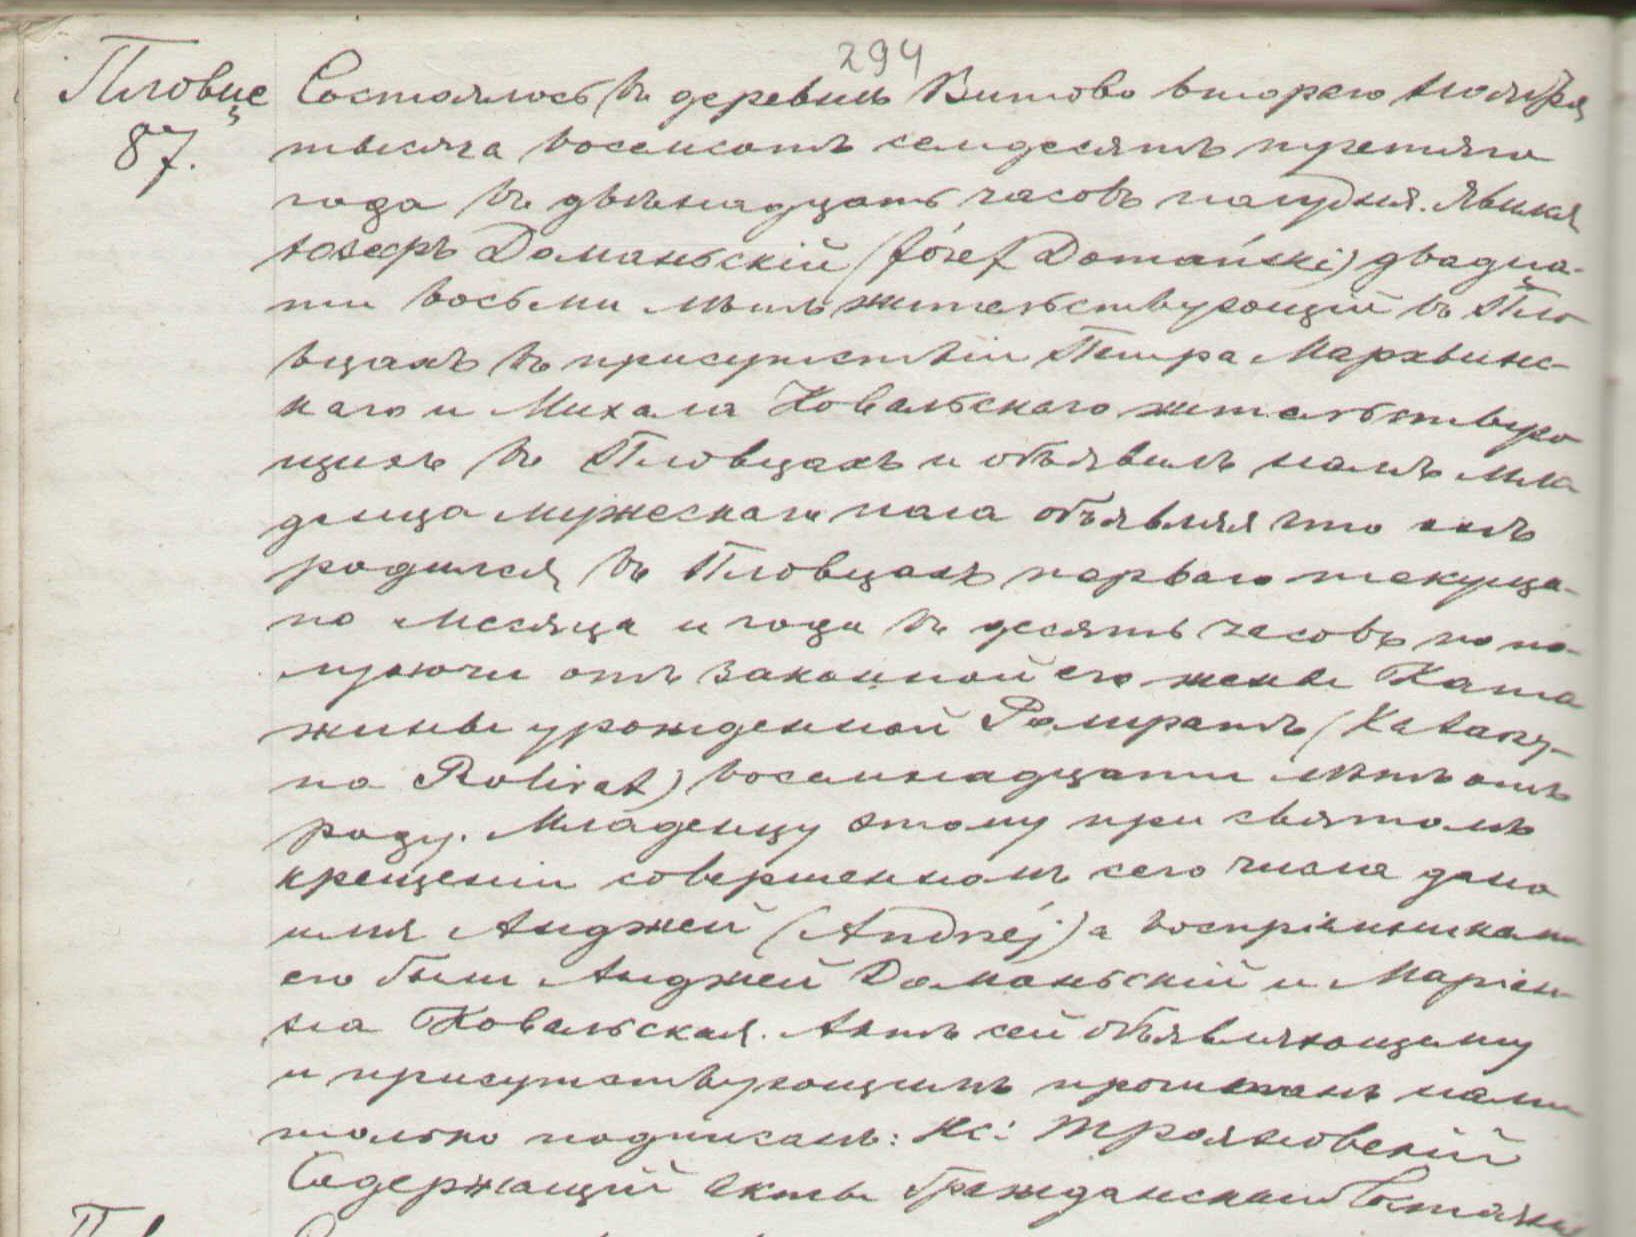 294
Пловце
87.
Состоялось въ деревнѣ Витово втораго Ноября
тысяча восемсотъ семдесятъ третяго
года въ двѣнадцать часовъ полудня. Явился
Юзефъ Доманьскій (Józef Domański) двадца-
ти восьми лѣтъ жительствующій въ Пло
вцахъ въ присутствіи Петра Мархвинс-
каго и Михала Ковальскаго жительствую
щихъ въ Пловцахъ и объявилъ намъ мла
денца мужескаго пола объявляя что онъ
родился въ Пловцахъ перваго текуща-
го месяца и года въ десять часовъ по по-
луночи отъ законной его жены Ката
жины урожденной (Katarzy-
na Rolirat) восемнадцати лѣтъ отъ
роду. Младенцу этому при святомъ
крещеніи совершенномъ сего числа дано
имя Анджей (Andrzej) а воспріемниками
его были Анджей Доманьскій и Маріан-
на Ковальская. Актъ сей объявляющему
и присутствующимъ прочитанъ нами
только подписанъ: Кс: Трояновскій
Содержащій акты Гражданскаго Состоянія